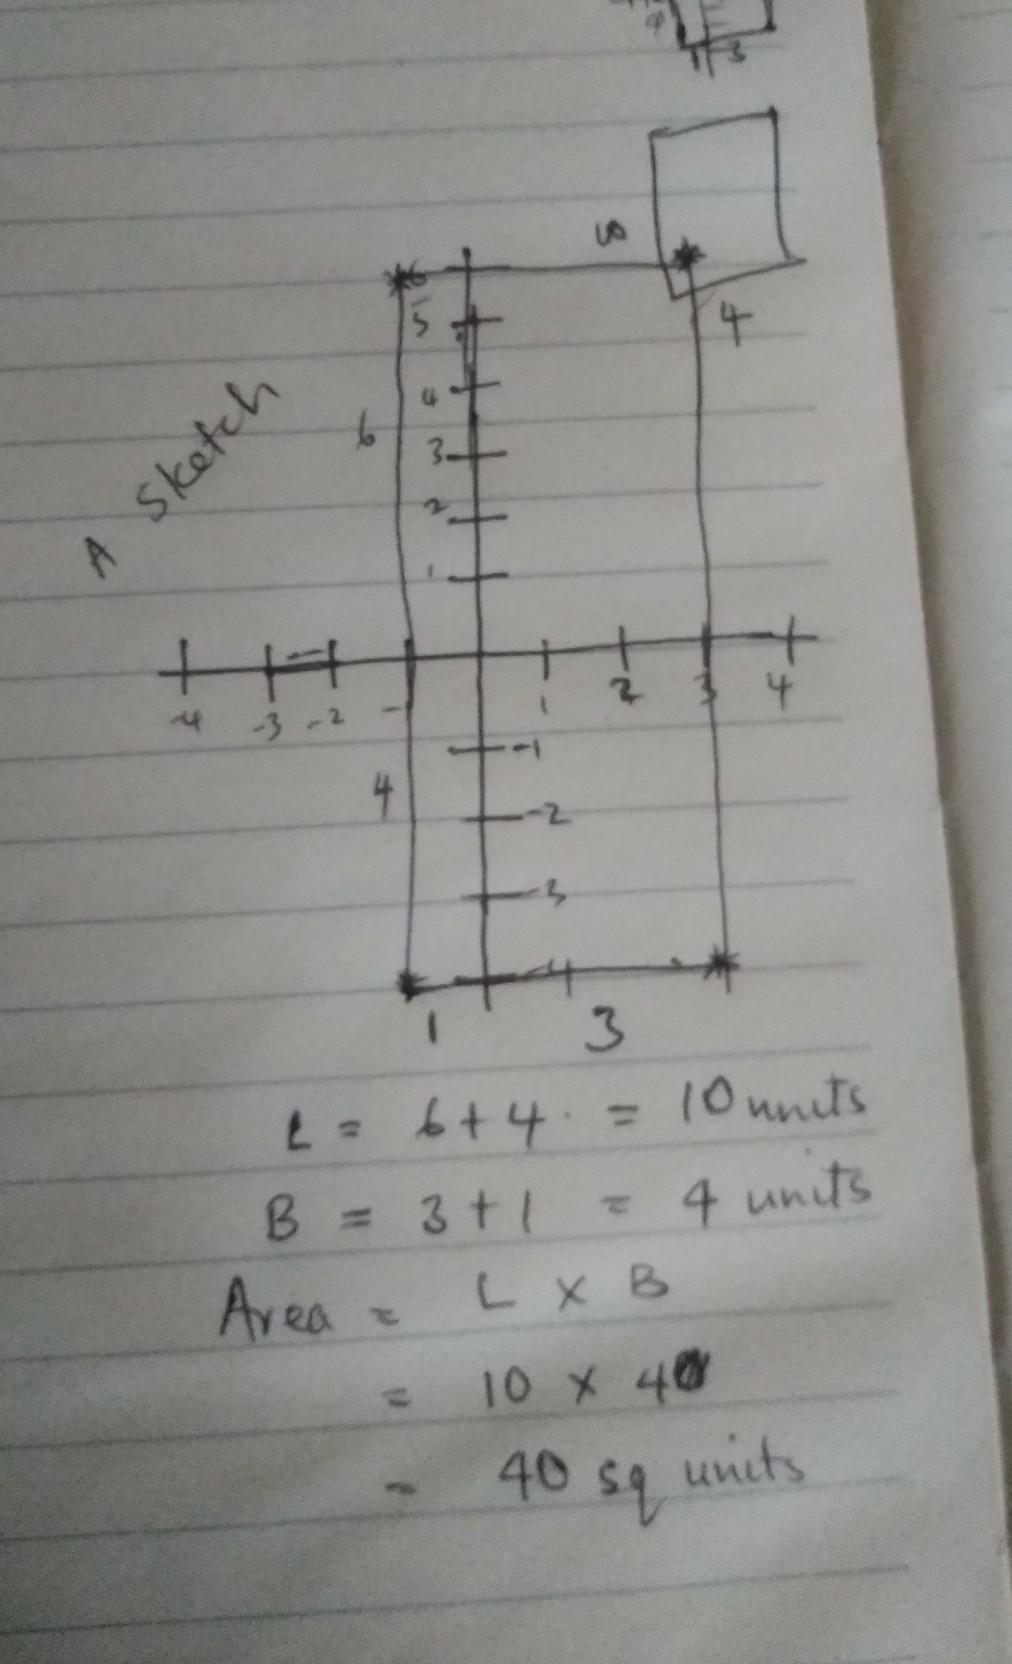 3
5
4
6
5
4
3
2
1
6
A Sketch
-4 -3 -2 - 1 2 3 4
-1
4
-2
-3
-4
1 3
L = 6 + 4 . = 10 units
B = 3 + 1 = 4 units
Area = L x B
= 10 x 4
= 40 sq units